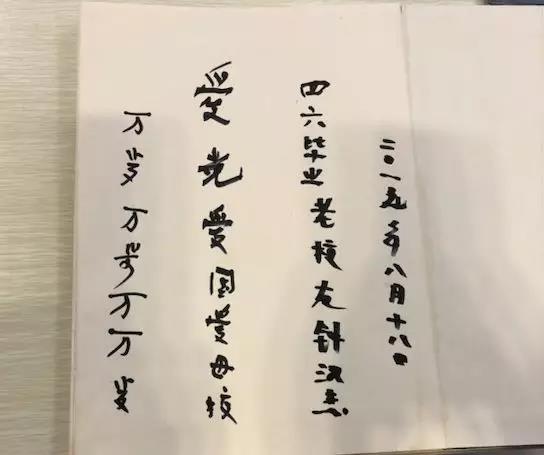 二〇一九年八月十八日
四六毕业老校友
爱党爱国爱母校
万岁万岁万万岁